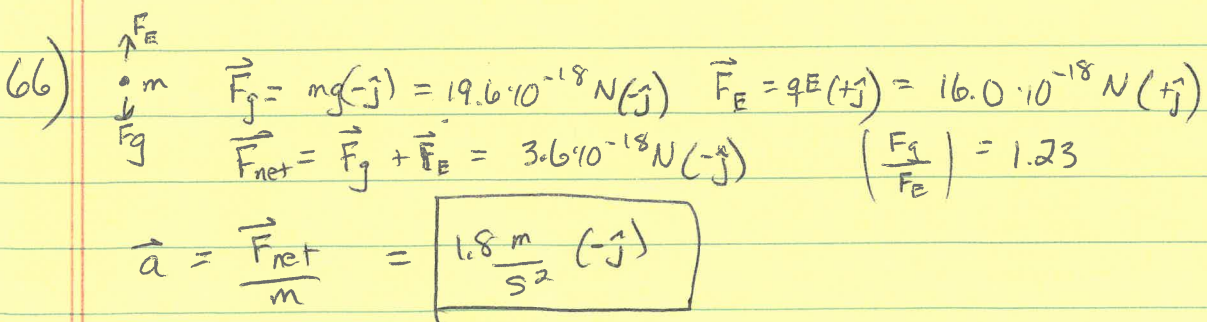 66) F_E
• m F⃗_g = mg(-ĵ) = 19.6·10^-18 N(-ĵ) F⃗_E = qE(+ĵ) = 16.0·10^-18 N(+ĵ)
F_g F⃗_net = F⃗_g + F⃗_E = 3.6·10^-18 N(-ĵ) (F_g/F_E) = 1.23
a⃗ = F⃗_net/m = 1.8 m/s² (-ĵ)